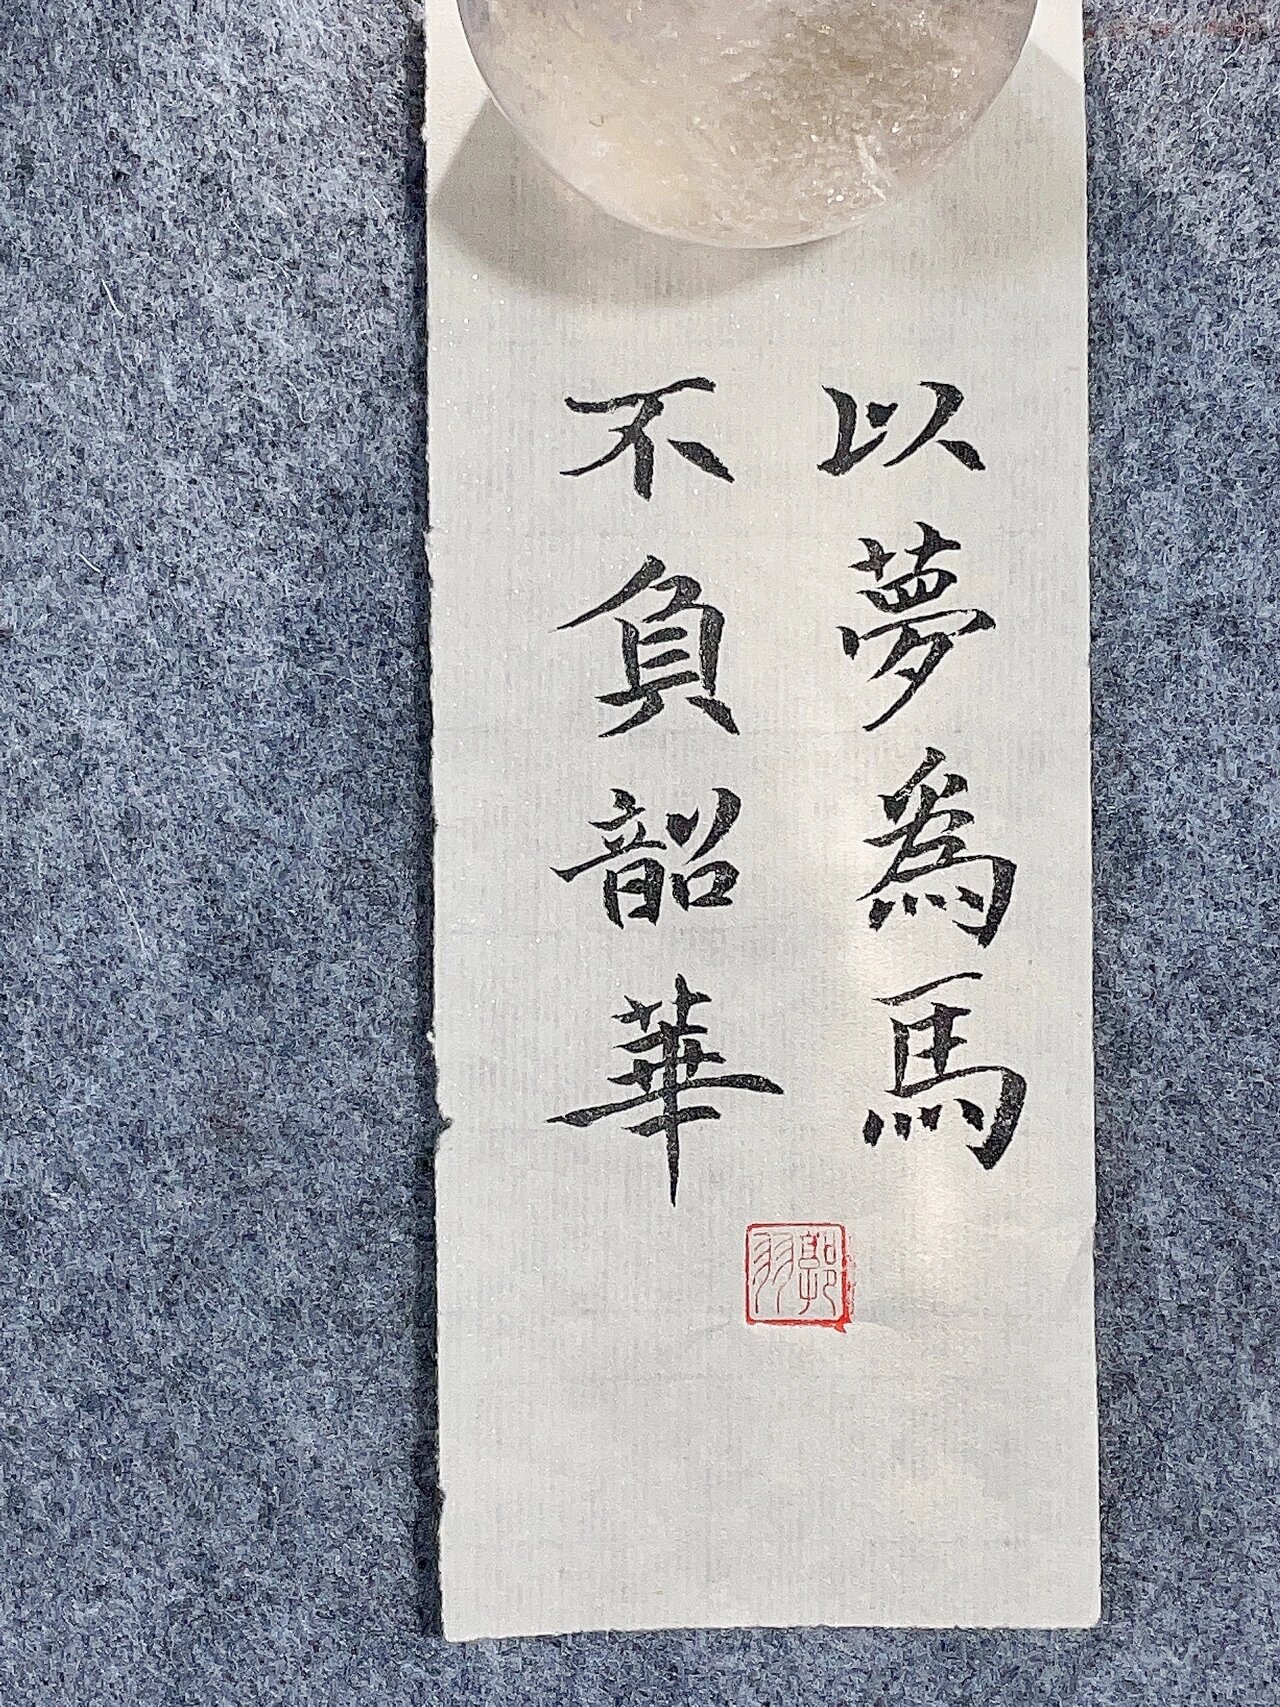 以夢為馬
不負韶華
郭羽